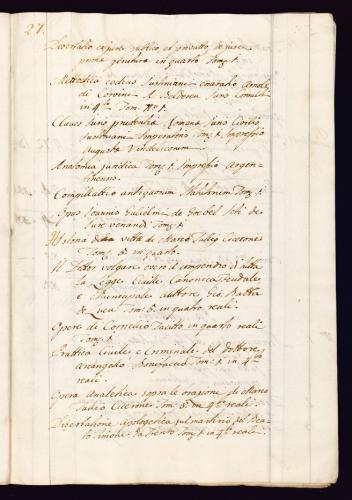 27.
Dissertatio ex jure publico et privatto de jure
prima genitura in quarto Tom: 1.
Metthodica codicis Justiniani enaratio Arnoldi
di Corvini A Belderen Juris Consulti
in 4to Tom. No 1.
Claves Juris prudentia Romana Juris Civilis
Justiniani Imperatoris Tom: 1. Impressio
Augusta Vindelicorum.
Anatomia juridica Tom: 1. Impressio Argen-
tinensis.
Compillattio antiquorum Tom: 1.
Opus Joannis Gulielmi de Gobel Jch: de
Jure venandi Tom: 1.
Istoria della vitta di Marco Tullio Cicerone
Tom: 5. in quarto.
Il Dottor volgare overo il compendio di tutta
la Legge Civille Canonica Feudale
e Municipale auttore Gio: Batta
de Luca Tom: 6. in quatro reali.
Opere di Cornelio Tacito in quarto reali
Tom: 1.
Prattica Civile e Criminale del dottore
Arcangelo Bonifaccio Tom: 1. in 4to
reali.
Opera Analetica sopra le orazioni di Marco
Tulio Cicerone Tom: 6. in 4to reali.
Dissertazione apologetica sul martirio del Bea-
to Simone da Trento Tom: 1. in 4to reali.